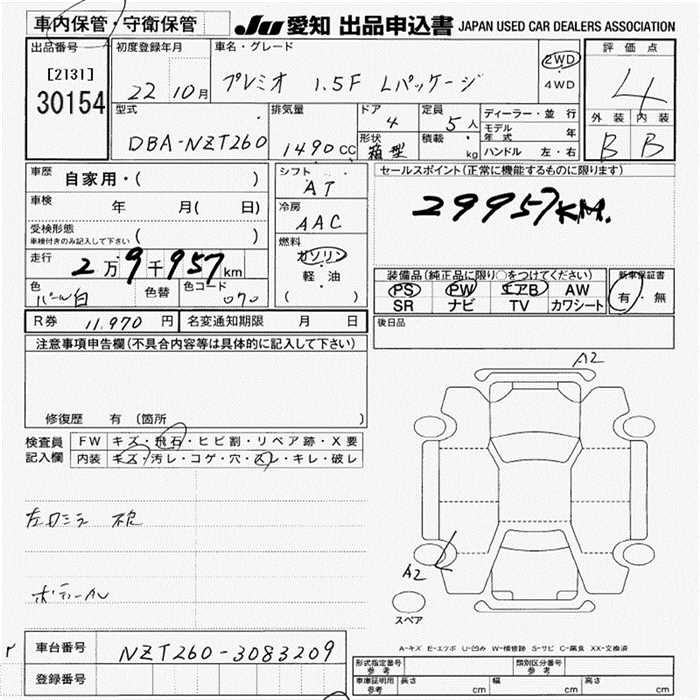 車内保管・守衛保管 JU 愛知 出品申込書 JAPAN USED CAR DEALERS ASSOCIATION
出品番号 初度登録年月 車名・グレード 評価点
[2131] 30154 22 10月 プレミオ 1.5F Lパッケージ 2WD 4WD 4
型式 排気量 ドア 定員 ディーラー・並行 外装 内装
DBA-NZT260 1490 CC 4 5人 モデル年式 年 B B
形状 箱型 積載 kg ハンドル 左・右
車歴 自家用・( ) シフト AT セールスポイント(正常に機能するものに限ります)
車検 年 月( 日) 冷房 AAC 29957KM.
受検形態 車検付きのみ記入して下さい ( ) 燃料 ガソリン 軽・油 ( )
走行 2万9千957km 装備品(純正品に限り○をつけてください) 新車保証書
色 パール白 色替 色コード 070 PS PW エアB AW 有・無
SR ナビ TV カワシート
R券 11,970円 名変通知期限 月 日 後日品
注意事項申告欄(不具合内容等は具体的に記入して下さい)
A2
修復歴 有 (箇所 )
検査員 記入欄 FW キズ・飛石・ヒビ割・リペア跡・X要
内装 キズ・汚レ・コゲ・穴・スレ・キレ・破レ
左ロミラ
A2
スペア
A-キズ E-エクボ U-凹み W-補修跡 S-サビ C-腐食 XX-交換済
車台番号 NZT260-3083209
登録番号
形式指定番号 参考 類別区分番号 参考
車庫証明用 参考 長さ cm 幅 cm 高さ cm